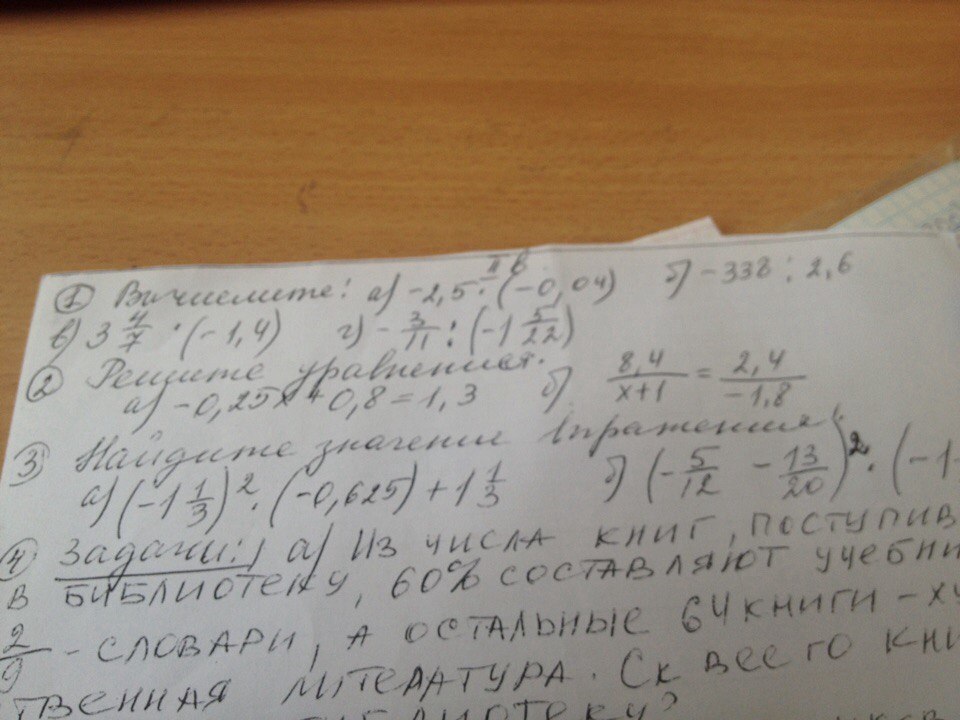 II в.
① Вычислите: а) -2,5 · (-0,04) б) -338 : 2,6
в) 3 4/7 · (-1,4) г) - 3/11 : (-1 5/22)
② Решите уравнения:
а) -0,25x + 0,8 = 1,3 б) 8,4/x+1 = 2,4/-1,8
③ Найдите значения выражения:
а) (-1 1/3)² · (-0,625) + 1 1/3 б) (- 5/12 - 13/20)² · (-1
④ Задачи: а) Из числа книг, поступив
в библиотеку, 60% составляют учебни
2/9 - словари, а остальные 64 книги - ху
твенная література. Ск всего кни